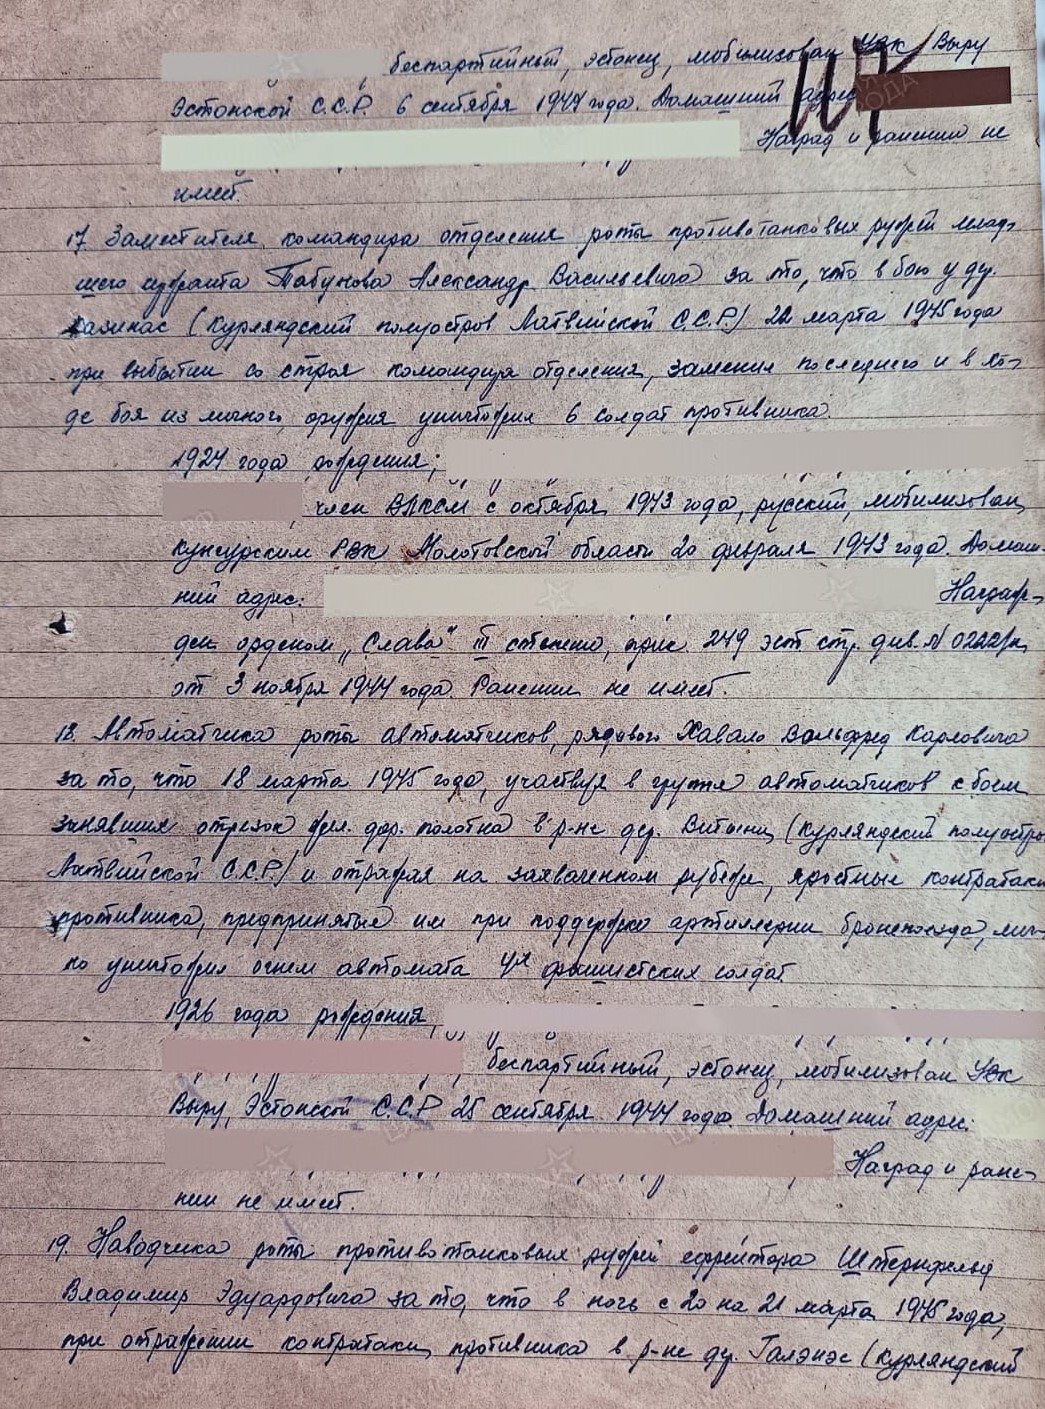 беспартийный, эстонец, мобилизован УВК Выру
Эстонской С.С.Р. 6 сентября 1944 года. Домашний адрес
Наград и ранений не
имеет.
17. Заместителя командира отделения роты противотанковых ружей млад-
шего сержанта Табунова Александр Васильевича за то, что в бою у дер.
(Курляндский полуостров Латвийской С.С.Р.) 22 марта 1945 года
при выбытии со строя командира отделения, заменил последнего и в хо-
де боя из личного оружия уничтожил 6 солдат противника.
1924 года рождения;
член ВЛКСМ с октября 1943 года, русский, мобилизован
Кунгурским РВК Молотовской области 20 февраля 1943 года. Домаш-
ний адрес: Награж-
ден орденом „Слава" III степени, прик. 249 эст. стр. див. №
от 3 ноября 1944 года. Ранений не имеет.
18. Автоматчика роты автоматчиков, рядового Хавало Вольфред Карловича
за то, что 18 марта 1945 года, участвуя в группе автоматчиков с боем
занявших отрезок жел. дор. полотна в р-не дер. Витыни (Курляндский полуостро
Латвийской С.С.Р.) и отражая на захваченном рубеже, яростные контратаки
противника, предпринятые им при поддержке артиллерии бронепоезда, лич-
но уничтожил огнем автомата 4х фашистских солдат.
1926 года рождения,
беспартийный, эстонец, мобилизован УВК
Выру, Эстонской С.С.Р. 25 сентября 1944 года. Домашний адрес:
Наград и ране-
ний не имеет.
19. Наводчика роты противотанковых ружей ефрейтора Штернфельд
Владимир Эдуардовича за то, что в ночь с 20 на 21 марта 1945 года,
при отражении контратаки противника в р-не дер. Галэнэс (Курляндский